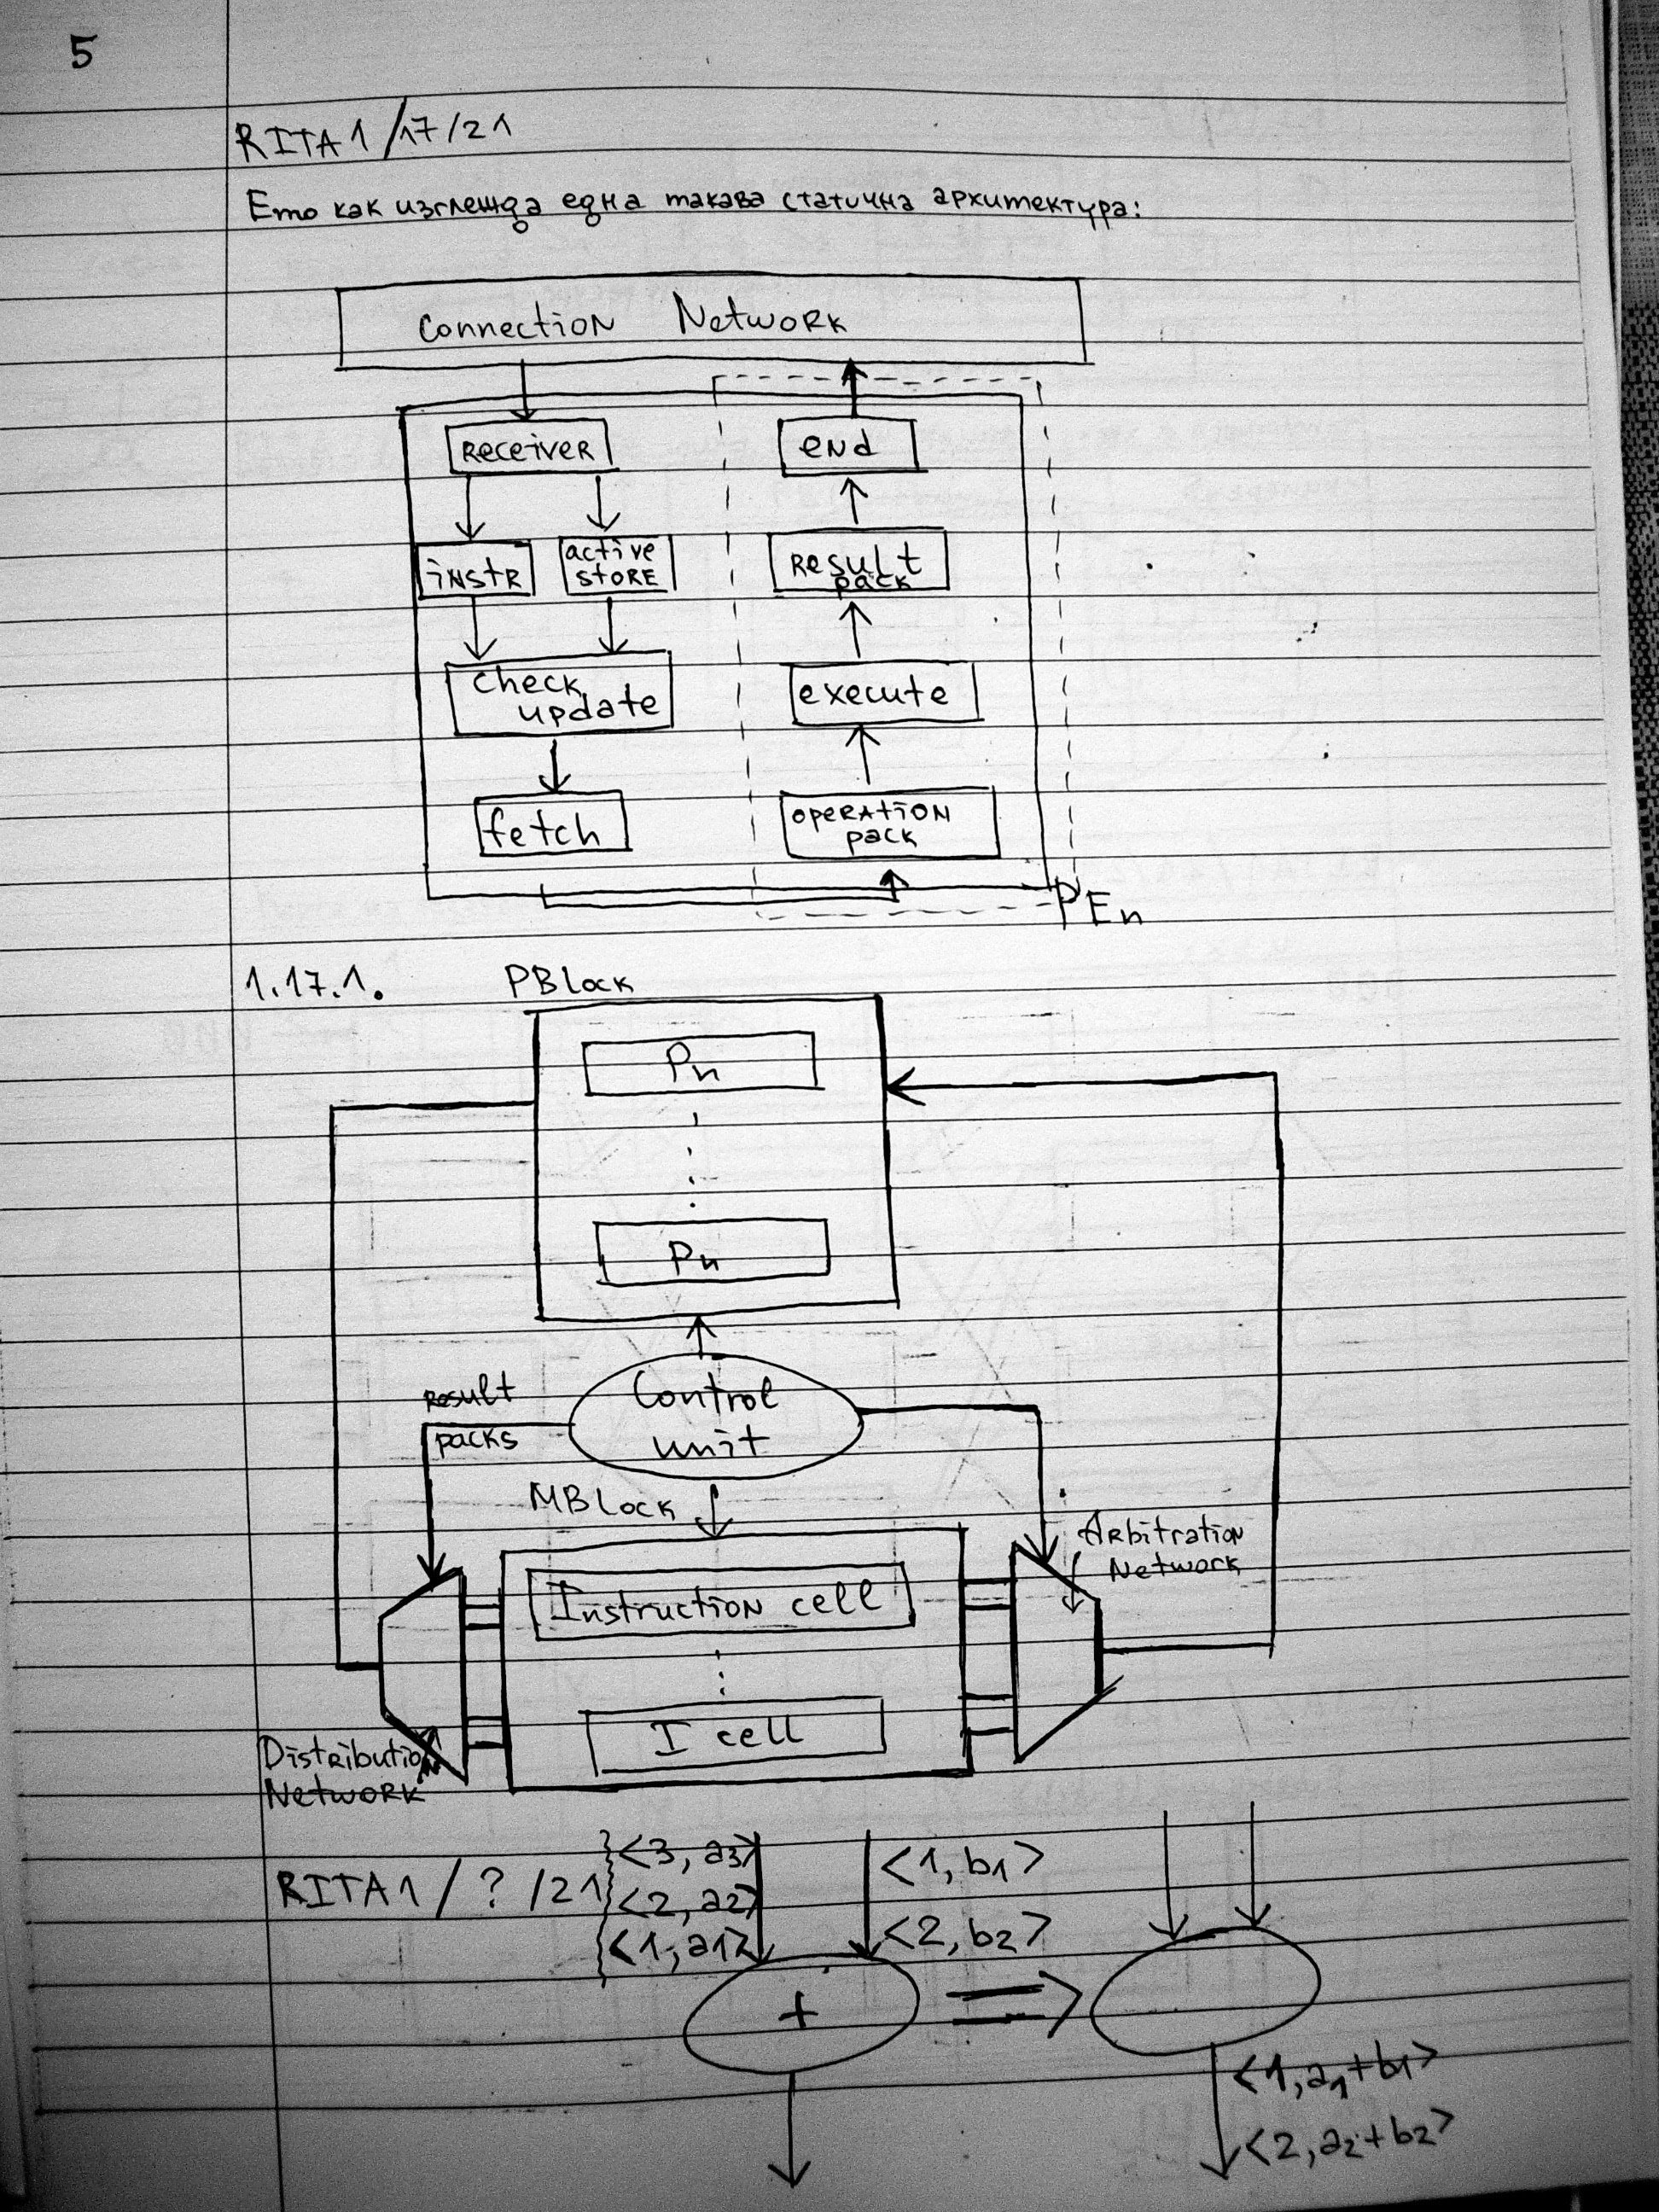 5
RITA1/17/21
Ето как изглежда една такава статична архитектура:
Connection Network
Receiver
end
instr
active
store
Result
pack
check
update
execute
fetch
operation
pack
PEn
1.17.1.
PBlock
Pn
Pn
Result
packs
Control
unit
MBlock
Arbitration
Network
Instruction cell
I cell
Distribution
Network
RITA1/?/21
<3, a3>
<2, a2>
<1, a1>
<1, b1>
<2, b2>
+
<1, a1+b1>
<2, a2+b2>